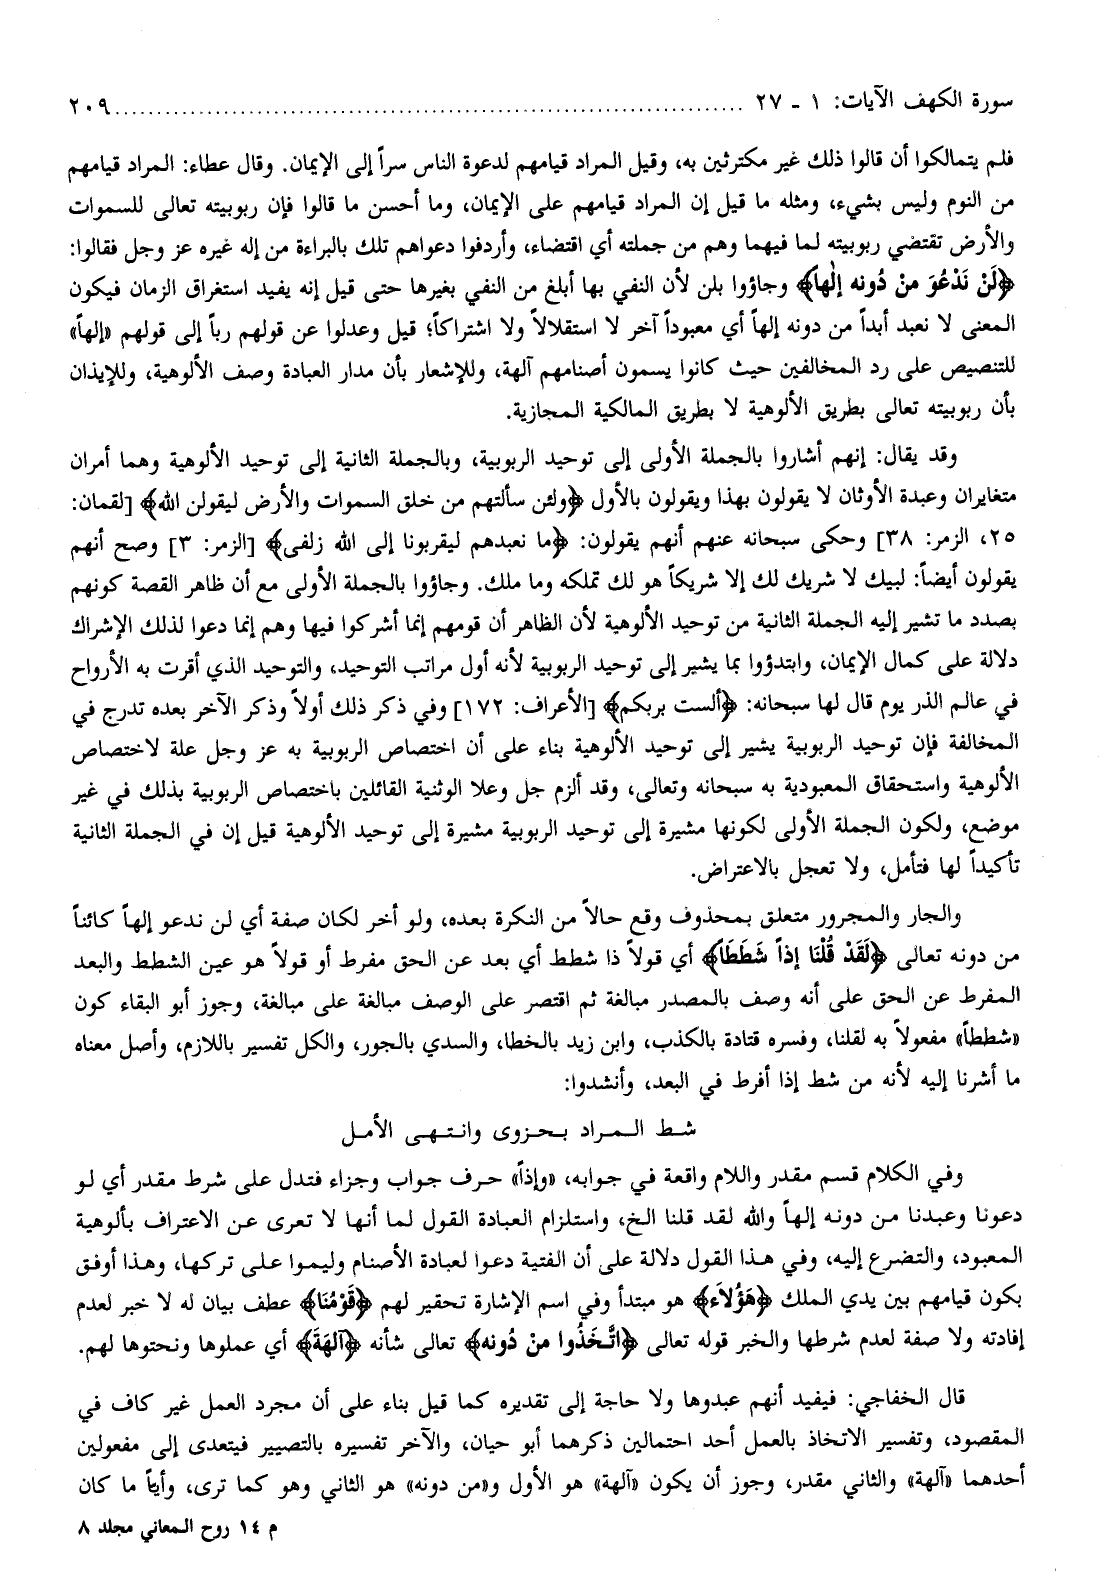 سورة الكهف الآيات: ١ ـ ٢٧ ........................................................................... ٢٠٩
فلم يتمالكوا أن قالوا ذلك غير مكترثين به، وقيل المراد قيامهم لدعوة الناس سراً إلى الإيمان. وقال عطاء: المراد قيامهم
من النوم وليس بشيء، ومثله ما قيل إن المراد قيامهم على الإيمان، وما أحسن ما قالوا فإن ربوبيته تعالى للسموات
والأرض تقتضي ربوبيته لما فيهما وهم من جملته أي اقتضاء، وأردفوا دعواهم تلك بالبراءة من إله غيره عز وجل فقالوا:
﴿لَنْ نَدْعُوَ مِنْ دُونِهِ إِلٰهاً﴾ وجاؤوا بلن لأن النفي بها أبلغ من النفي بغيرها حتى قيل إنه يفيد استغراق الزمان فيكون
المعنى لا نعبد أبداً من دونه إلهاً أي معبوداً آخر لا استقلالاً ولا اشتراكاً؛ قيل وعدلوا عن قولهم رباً إلى قولهم «إلهاً»
للتنصيص على رد المخالفين حيث كانوا يسمون أصنامهم آلهة، وللإشعار بأن مدار العبادة وصف الألوهية، وللإيذان
بأن ربوبيته تعالى بطريق الألوهية لا بطريق المالكية المجازية.
وقد يقال: إنهم أشاروا بالجملة الأولى إلى توحيد الربوبية، وبالجملة الثانية إلى توحيد الألوهية وهما أمران
متغايران وعبدة الأوثان لا يقولون بهذا ويقولون بالأول ﴿ولئن سألتهم من خلق السموات والأرض ليقولن الله﴾ [لقمان:
٢٥، الزمر: ٣٨] وحكى سبحانه عنهم أنهم يقولون: ﴿ما نعبدهم ليقربونا إلى الله زلفى﴾ [الزمر: ٣] وصح أنهم
يقولون أيضاً: لبيك لا شريك لك إلا شريكاً هو لك تملكه وما ملك. وجاؤوا بالجملة الأولى مع أن ظاهر القصة كونهم
بصدد ما تشير إليه الجملة الثانية من توحيد الألوهية لأن الظاهر أن قومهم إنما أشركوا فيها وهم إنما دعوا لذلك الإشراك
دلالة على كمال الإيمان، وابتدؤوا بما يشير إلى توحيد الربوبية لأنه أول مراتب التوحيد، والتوحيد الذي أقرت به الأرواح
في عالم الذر يوم قال لها سبحانه: ﴿ألست بربكم﴾ [الأعراف: ١٧٢] وفي ذكر ذلك أولاً وذكر الآخر بعده تدرج في
المخالفة فإن توحيد الربوبية يشير إلى توحيد الألوهية بناء على أن اختصاص الربوبية به عز وجل علة لاختصاص
الألوهية واستحقاق المعبودية به سبحانه وتعالى، وقد ألزم جل وعلا الوثنية القائلين باختصاص الربوبية بذلك في غير
موضع، ولكون الجملة الأولى لكونها مشيرة إلى توحيد الربوبية مشيرة إلى توحيد الألوهية قيل إن في الجملة الثانية
تأكيداً لها فتأمل، ولا تعجل بالاعتراض.
والجار والمجرور متعلق بمحذوف وقع حالاً من النكرة بعده، ولو أخر لكان صفة أي لن ندعو إلهاً كائناً
من دونه تعالى ﴿لَقَدْ قُلْنَا إِذاً شَطَطاً﴾ أي قولاً ذا شطط أي بعد عن الحق مفرط أو قولاً هو عين الشطط والبعد
المفرط عن الحق على أنه وصف بالمصدر مبالغة ثم اقتصر على الوصف مبالغة على مبالغة، وجوز أبو البقاء كون
«شططاً» مفعولاً به لقلنا، وفسره قتادة بالكذب، وابن زيد بالخطا، والسدي بالجور، والكل تفسير باللازم، وأصل معناه
ما أشرنا إليه لأنه من شط إذا أفرط في البعد، وأنشدوا:
شط المراد بحزوى وانتهى الأمل
وفي الكلام قسم مقدر واللام واقعة في جوابه، «وإذاً» حرف جواب وجزاء فتدل على شرط مقدر أي لو
دعونا وعبدنا من دونه إلهاً والله لقد قلنا الخ، واستلزام العبادة القول لما أنها لا تعرى عن الاعتراف بألوهية
المعبود، والتضرع إليه، وفي هذا القول دلالة على أن الفتية دعوا لعبادة الأصنام وليموا على تركها، وهذا أوفق
بكون قيامهم بين يدي الملك ﴿هَؤُلَاءِ﴾ هو مبتدأ وفي اسم الإشارة تحقير لهم ﴿قَوْمُنَا﴾ عطف بيان له لا خبر لعدم
إفادته ولا صفة لعدم شرطها والخبر قوله تعالى ﴿اتَّخَذُوا مِنْ دُونِهِ﴾ تعالى شأنه ﴿آلِهَةً﴾ أي عملوها ونحتوها لهم.
قال الخفاجي: فيفيد أنهم عبدوها ولا حاجة إلى تقديره كما قيل بناء على أن مجرد العمل غير كاف في
المقصود، وتفسير الاتخاذ بالعمل أحد احتمالين ذكرهما أبو حيان، والآخر تفسيره بالتصيير فيتعدى إلى مفعولين
أحدهما «آلهة» والثاني مقدر، وجوز أن يكون «آلهة» هو الأول و«من دونه» هو الثاني وهو كما ترى، وأياً ما كان
م ١٤ روح المعاني مجلد ٨